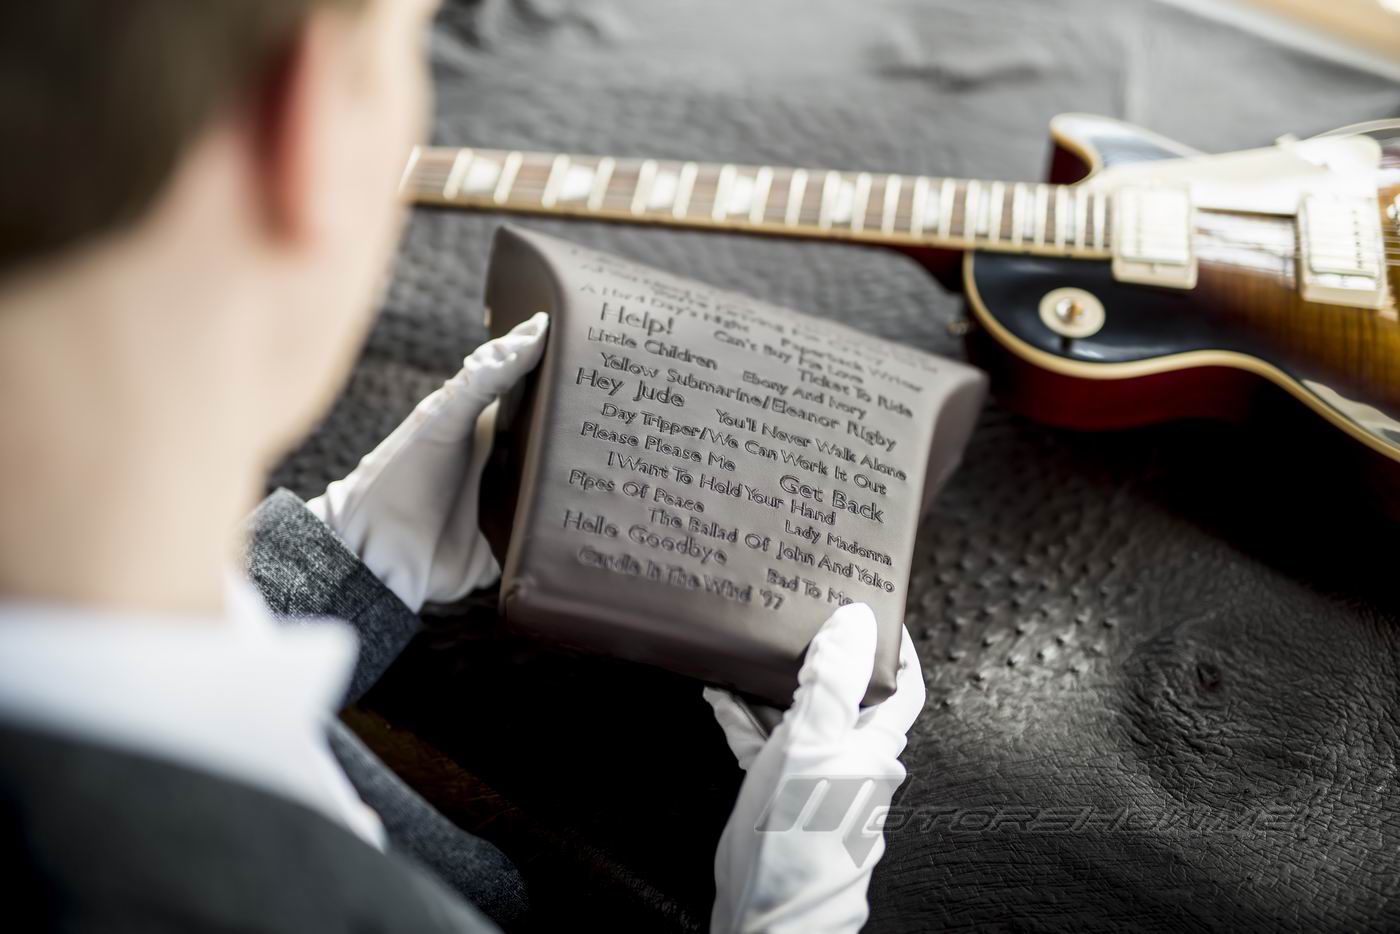 A Hard Day's Night
Paperback Writer
Help! Can't Buy Me Love
Little Children Ticket To Ride
Ebony And Ivory
Yellow Submarine/Eleanor Rigby
Hey Jude You'll Never Walk Alone
Day Tripper/We Can Work It Out
Please Please Me Get Back
I Want To Hold Your Hand
Pipes Of Peace Lady Madonna
The Ballad Of John And Yoko
Hello Goodbye Bad To Me
Candle In The Wind '97
MOTORSHOW.ME